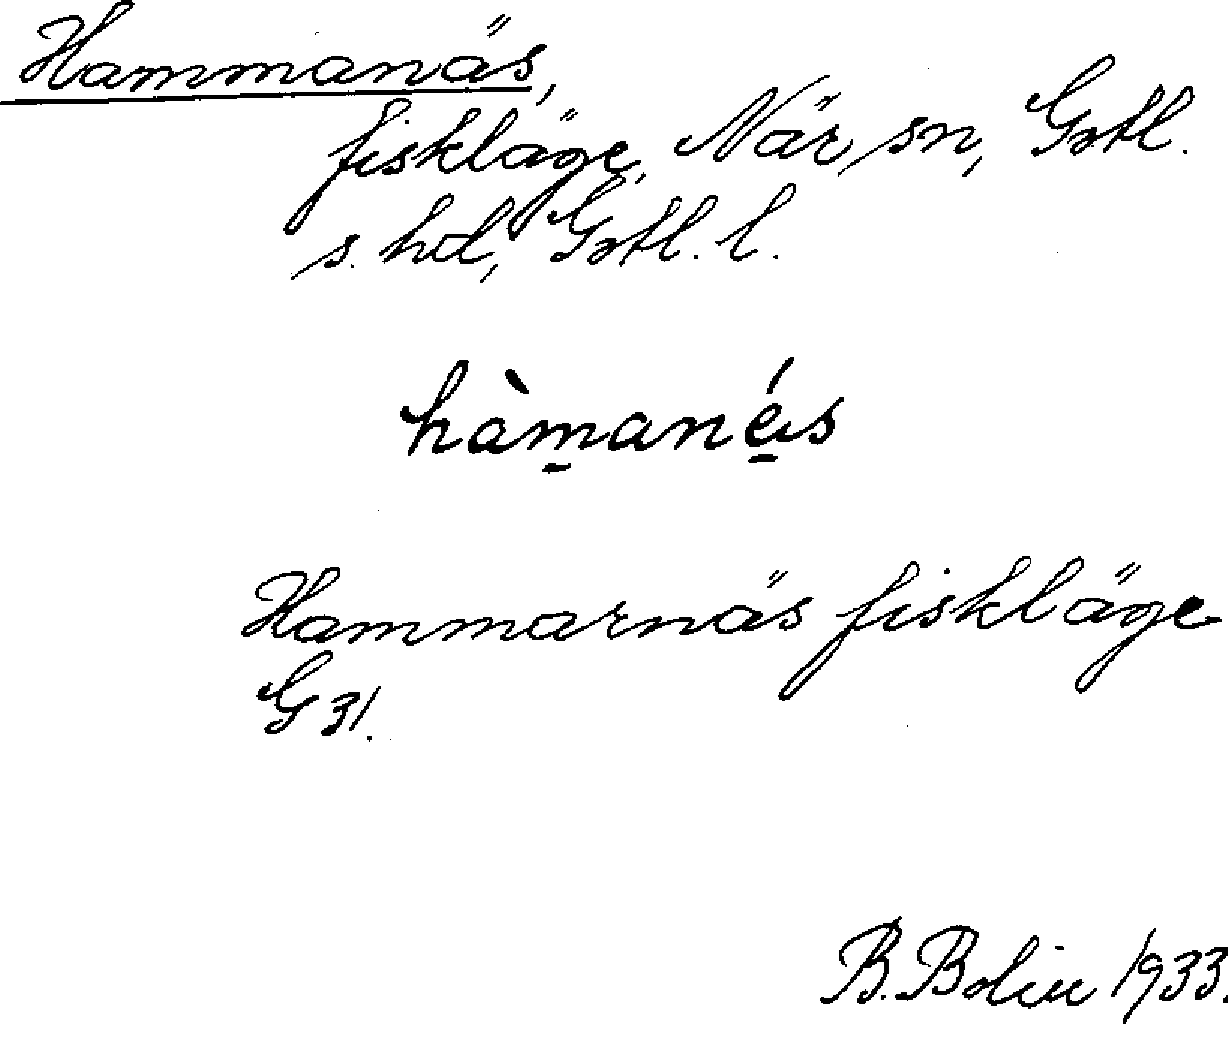 Hammanäs,
fiskläge, När sn, Gotl.
s. hd, Gotl. l.
hàmanés
Hammarnäs fiskläge
G 31.
B. Bolin 1933.